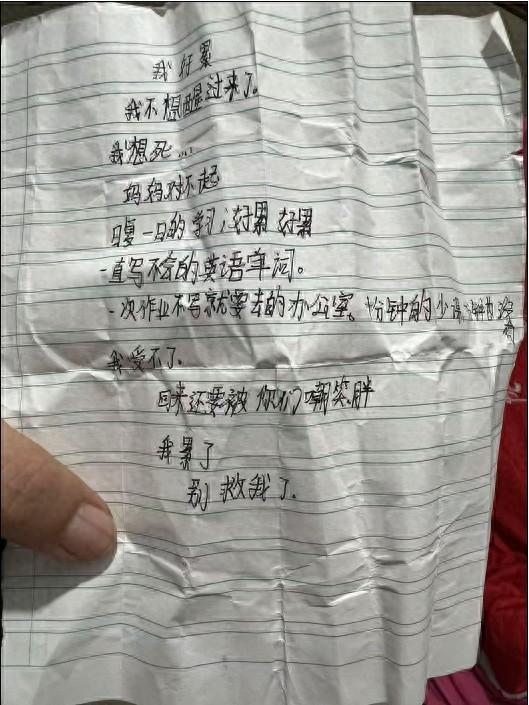 我好累
我不想醒过来了。
我想死...
妈妈对不起
日复一日的学习，好累 好累
一直写不会的英语单词。
一次作业不写就要去的办公室。十分钟的少
我受不了.
回来还要被你们嘲笑胖
我累了
别救我了.